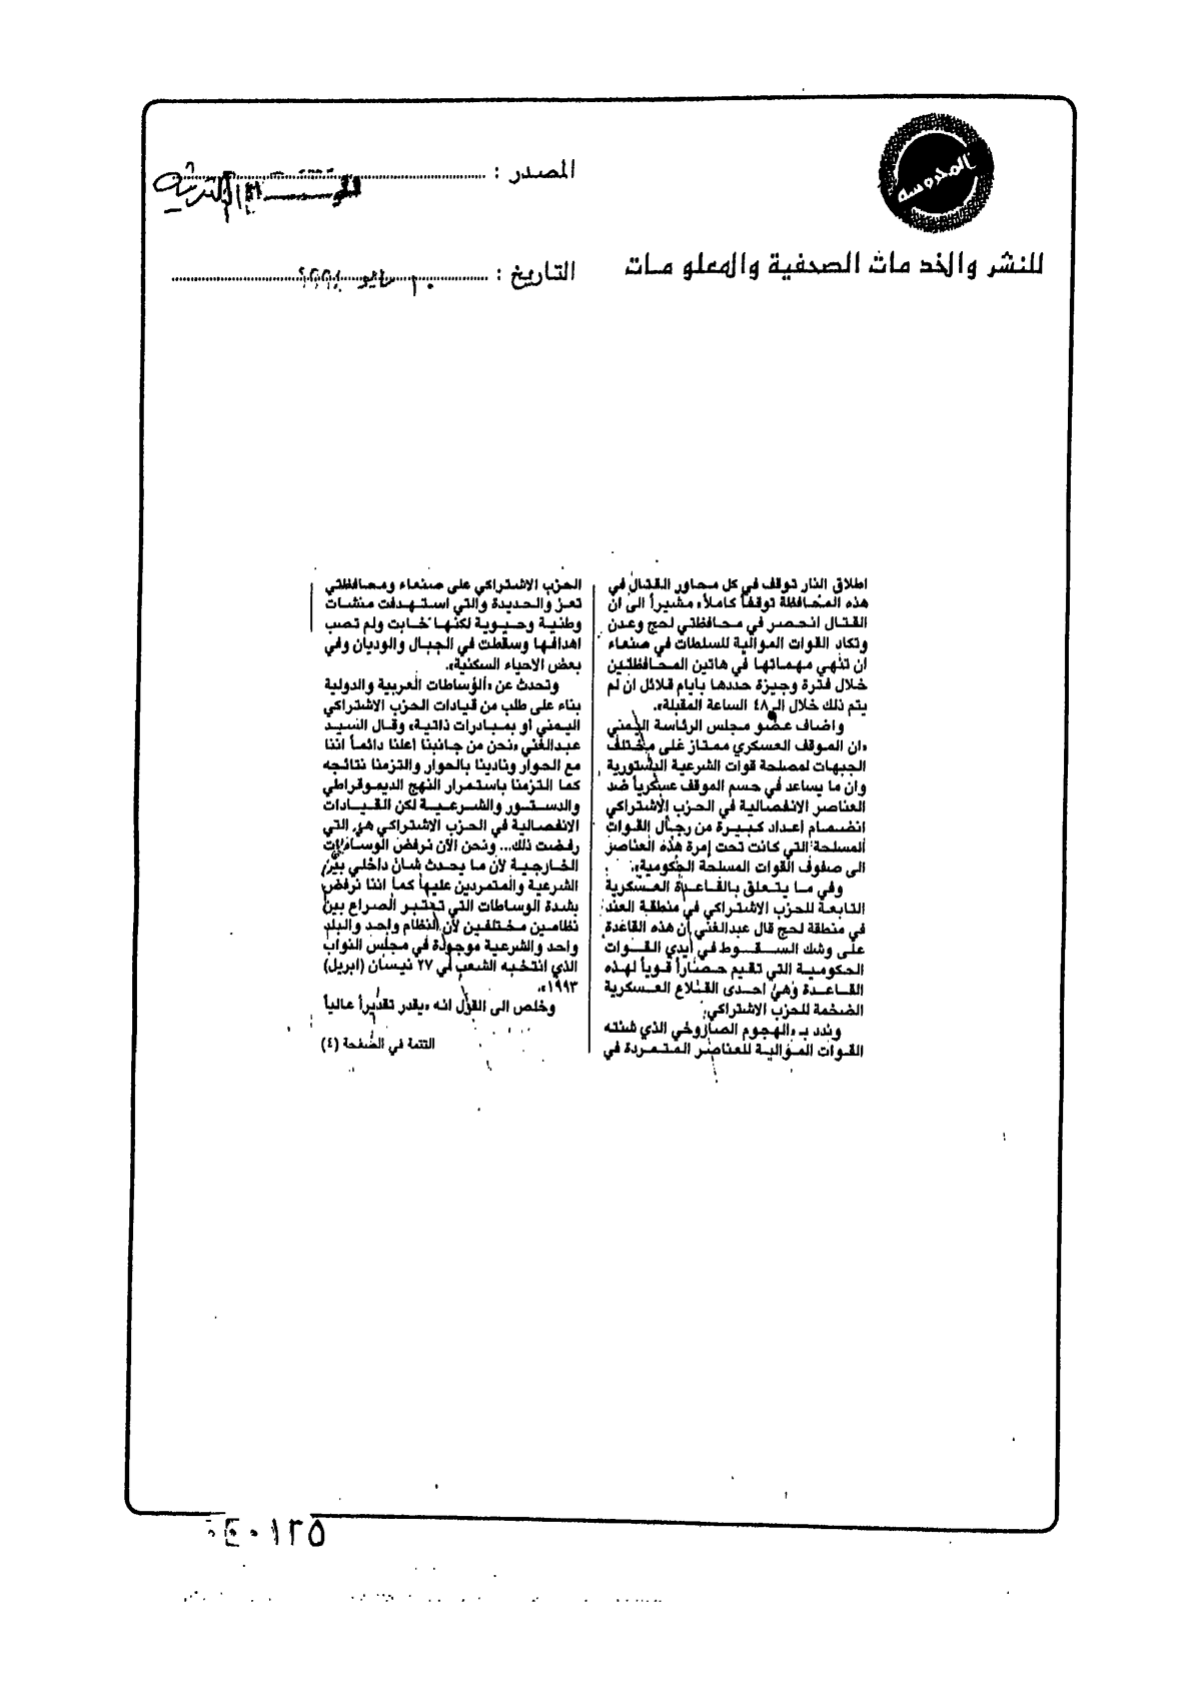 المحروسه
للنشر والخد مات الصحفية والمعلو مات
المصدر :
التاريخ : مايو
اطلاق النار توقف في كل محاور القتال في
هذه المحافظة توقفاً كاملاً» مشيراً الى ان
القتال انحصر في محافظتي لحج وعدن
وتكاد القوات الموالية للسلطات في صنعاء
ان تنهي مهماتها في هاتين المحافظتين
خلال فترة وجيزة حددها بايام قلائل ان لم
يتم ذلك خلال الـ٤٨ الساعة المقبلة».
واضاف عضو مجلس الرئاسة اليمني
«ان الموقف العسكري ممتاز على مختلف
الجبهات لمصلحة قوات الشرعية الدستورية
وان ما يساعد في حسم الموقف عسكرياً ضد
العناصر الانفصالية في الحزب الاشتراكي
انضمام اعداد كبيرة من رجال القوات
المسلحة التي كانت تحت إمرة هذه العناصر
الى صفوف القوات المسلحة الحكومية».
وفي ما يتعلق بالقاعدة العسكرية
التابعة للحزب الاشتراكي في منطقة العند
في منطقة لحج قال عبدالغني ان هذه القاعدة
على وشك السقوط في ايدي القوات
الحكومية التي تقيم حصاراً قوياً لهذه
القاعدة وهي احدى القلاع العسكرية
الضخمة للحزب الاشتراكي.
وندد بـ «الهجوم الصاروخي الذي شنته
القوات الموالية للعناصر المتمردة في
الحزب الاشتراكي على صنعاء ومحافظتي
تعز والحديدة والتي استهدفت منشآت
وطنية وحيوية لكنها خابت ولم تصب
اهدافها وسقطت في الجبال والوديان وفي
بعض الاحياء السكنية».
وتحدث عن «الوساطات العربية والدولية
بناء على طلب من قيادات الحزب الاشتراكي
اليمني او بمبادرات ذاتية» وقال السيد
عبدالغني «نحن من جانبنا اعلنا دائماً اننا
مع الحوار ونادينا بالحوار والتزمنا نتائجه
كما التزمنا باستمرار النهج الديموقراطي
والدستور والشرعية لكن القيادات
الانفصالية في الحزب الاشتراكي هي التي
رفضت ذلك... ونحن الآن نرفض الوساطات
الخارجية لأن ما يحدث شأن داخلي بين
الشرعية والمتمردين عليها كما اننا نرفض
بشدة الوساطات التي تعتبر الصراع بين
نظامين مختلفين لأن النظام واحد والبلد
واحد والشرعية موجودة في مجلس النواب
الذي انتخبه الشعب في ٢٧ نيسان (ابريل)
١٩٩٣».
وخلص الى القول انه «يقدر تقديراً عالياً
التتمة في الصفحة (٤)